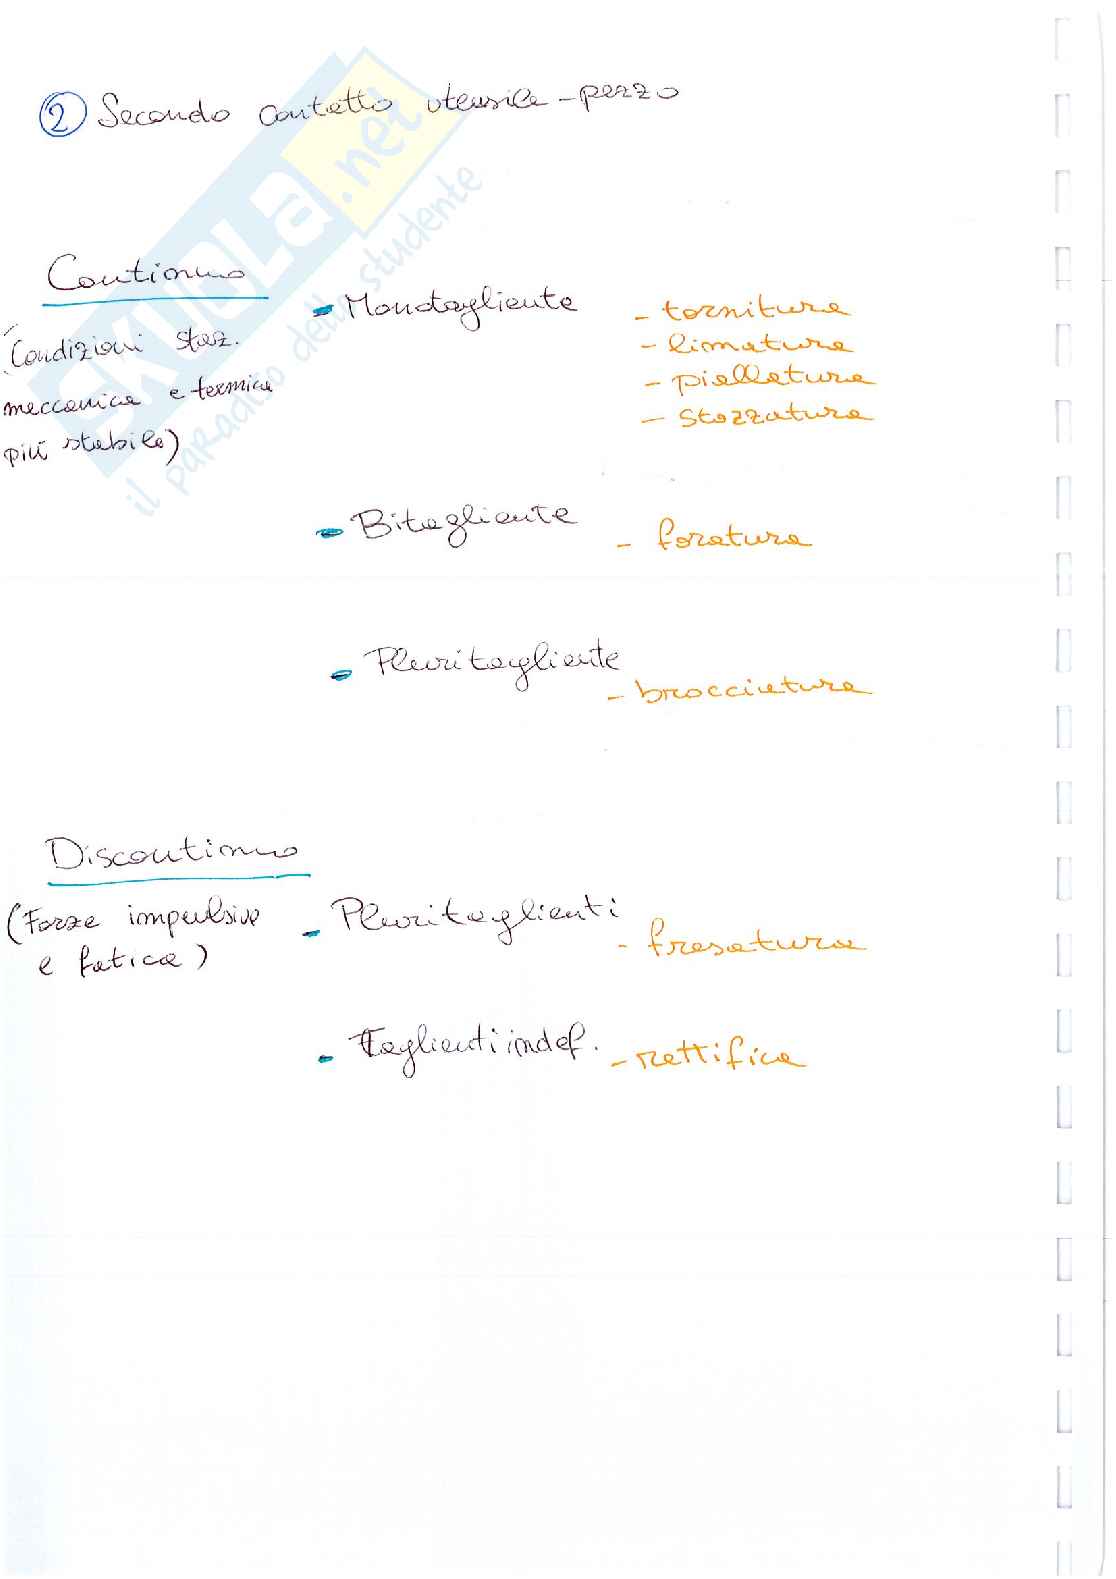 ② Secondo contatto utensile-pezzo
Continuo
(Condizioni staz.
meccanica e termica
più stabile)
- Monotagliente
- tornitura
- limatura
- piallatura
- stozzatura
- Bitagliente
- foratura
- Pluritagliente
- brocciatura
Discontinuo
(Forze impulsive
e fatica)
- Pluritaglienti
- fresatura
- Taglienti indef.
- rettifica
SKUOLA.net
il paradiso dello studente